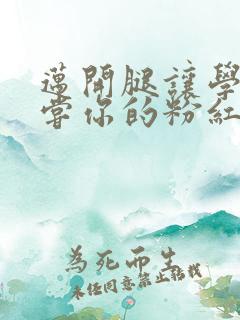 邁開腿讓學
當你的粉紅
為死而生
未任同意禁止轉載